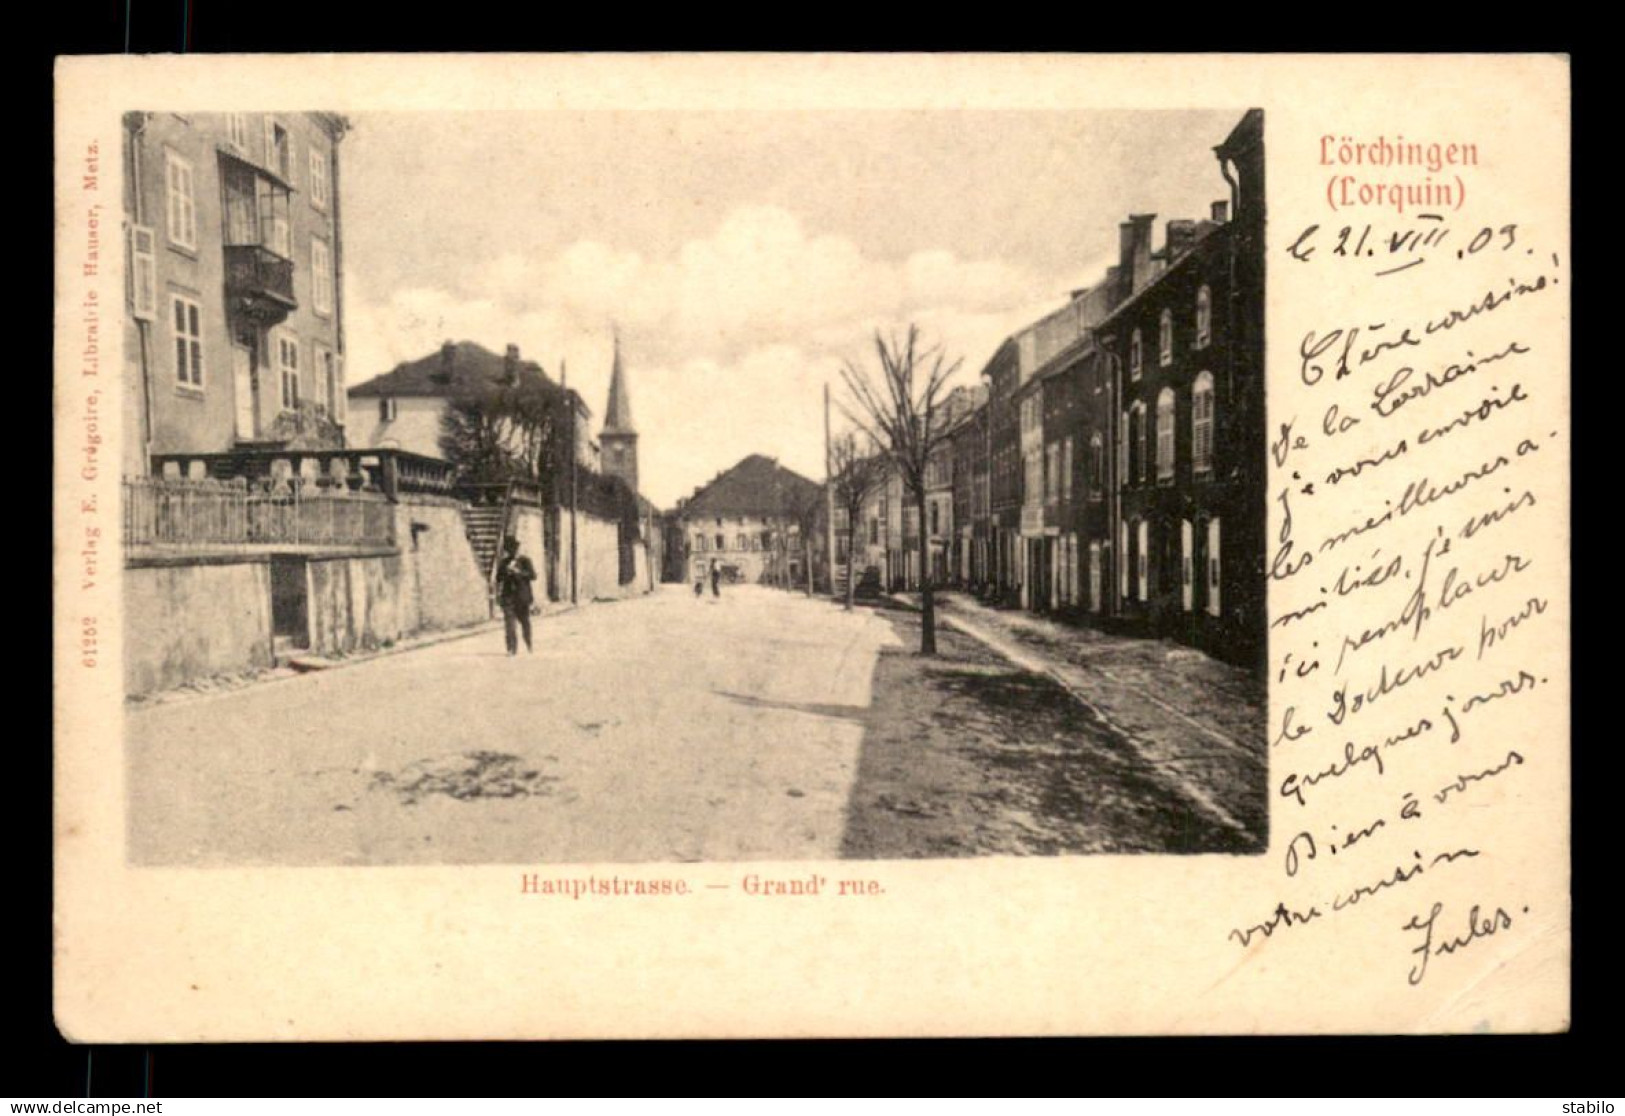 61252 Verlag E. Grégoire, Librairie Hauser, Metz.
Lörchingen
(Lorquin)
le 21. VIII. 03.
Chère cousine!
De la Lorraine
je vous envoie
les meilleures a-
mitiés. je suis
ici remplacer
le Docteur pour
quelques jours.
Bien à vous
votre cousin
Jules.
Hauptstrasse. — Grand' rue.
stabilo
www.delcampe.net